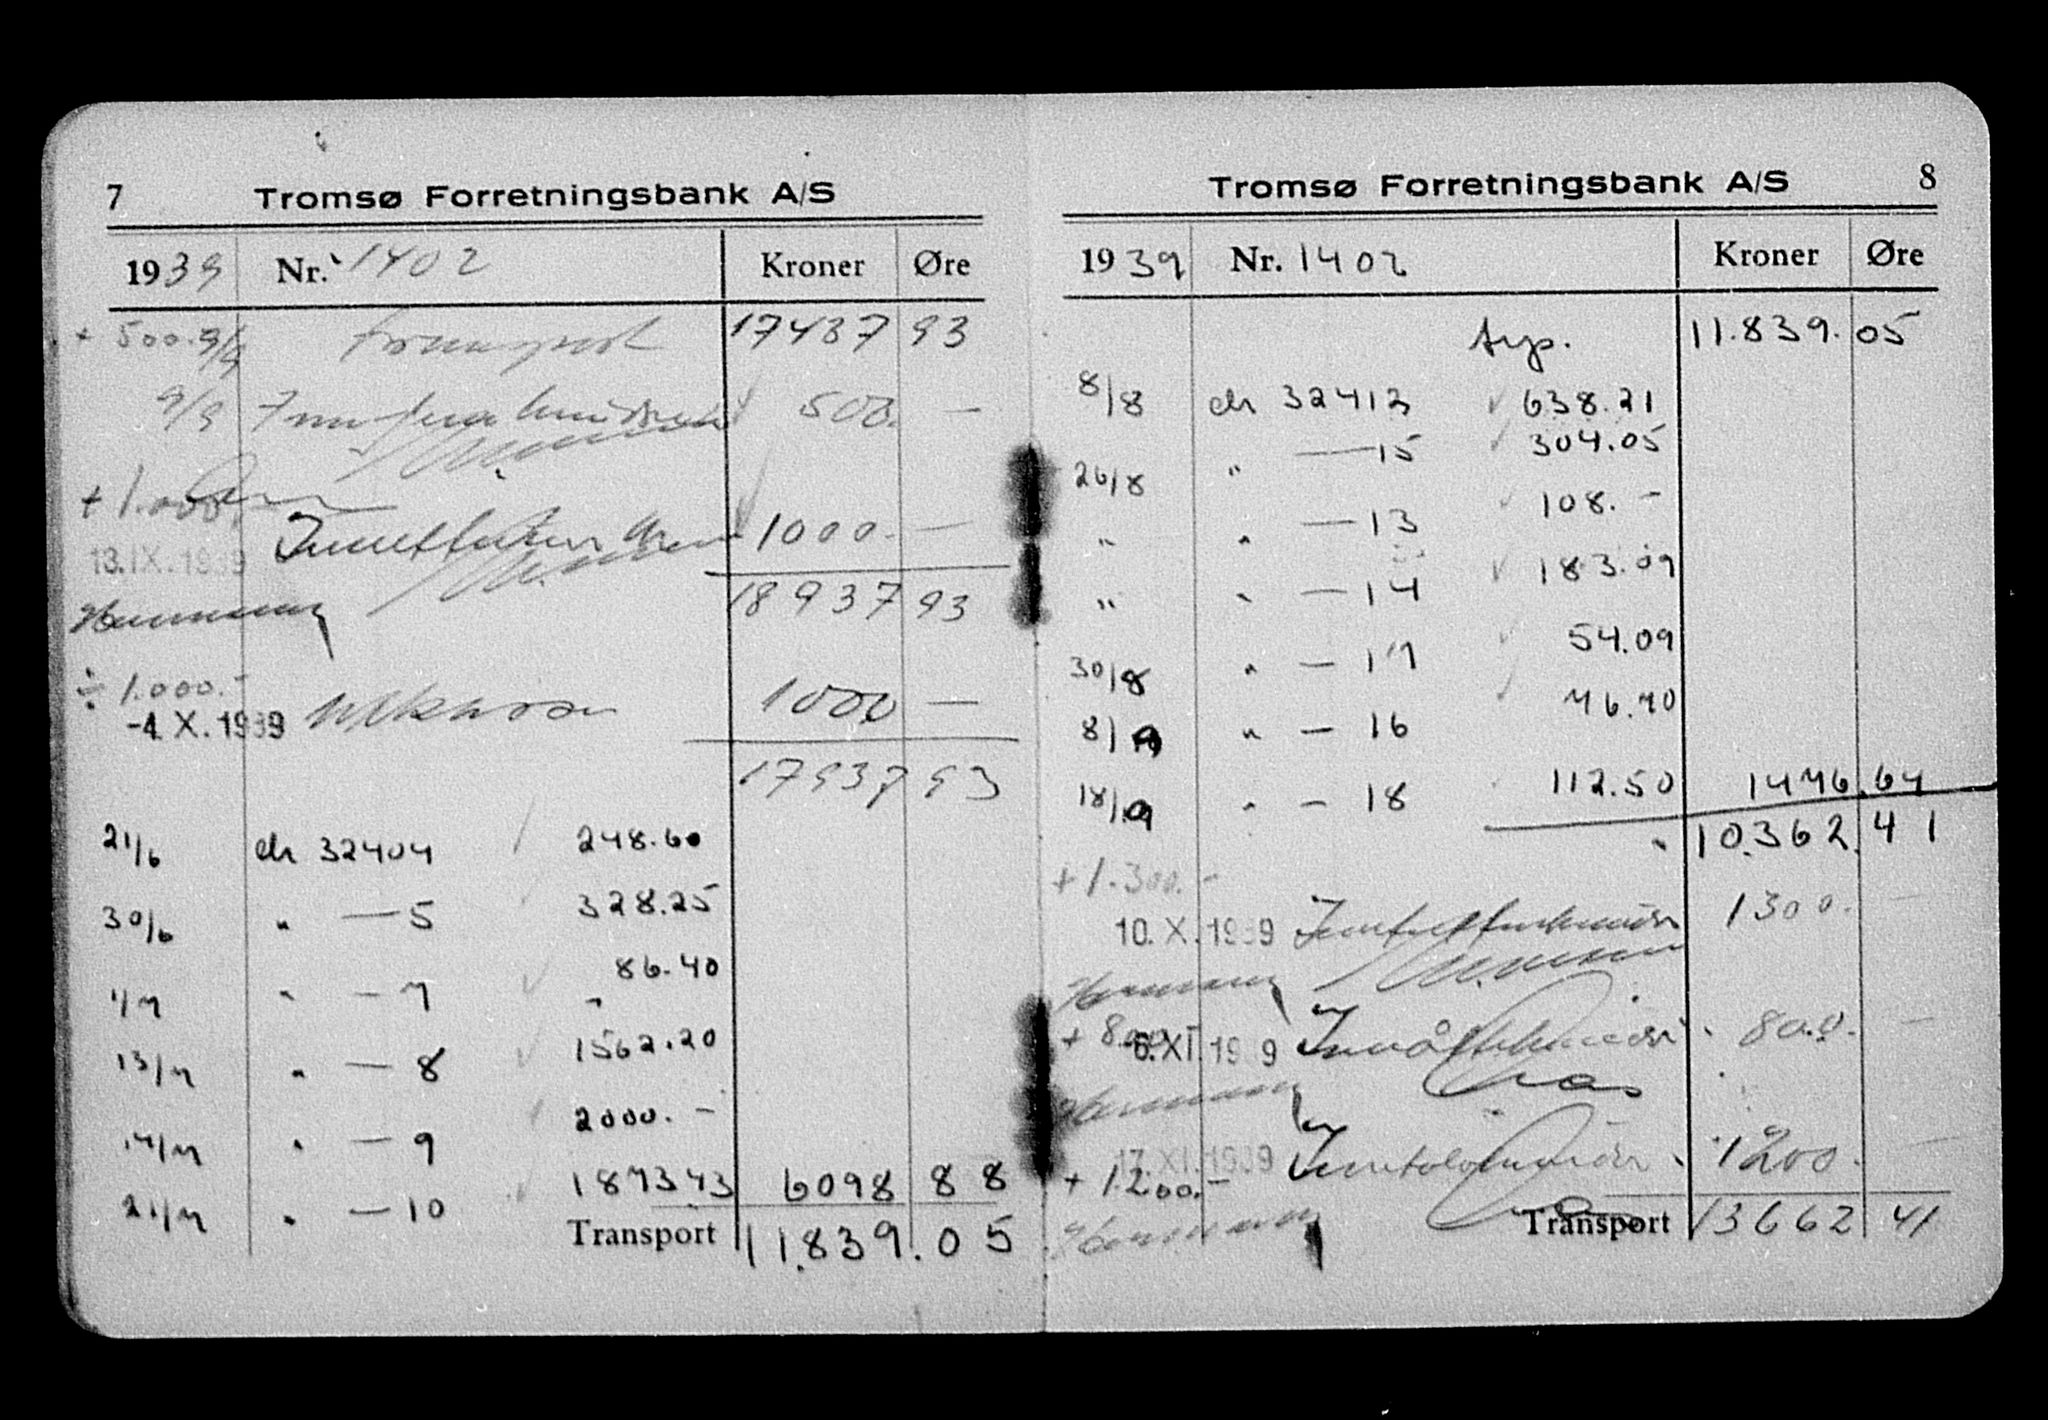 7 Tromsø Forretningsbank A/S
1939 Nr. 1402 Kroner Øre
+ 500.- 9/9 Transport 17437 93
9/9 Innfem hundrede 500. —
+ 1.000.-
13.IX.1939 Innettusen 1000.- —
18937 93
÷ 1.000.-
-4. X. 1939 1000 —
17937 93
21/6 ch 32404 248.60
30/6 " — 5 328.25
1/7 " — 7 86.40
13/7 " — 8 1562.20
14/7 " — 9 2000.-
21/7 " — 10 1873.43 6098 88
Transport 11.839.05
Tromsø Forretningsbank A/S 8
1939 Nr. 1402 Kroner Øre
trp. 11.839.05
8/8 ch 32412 638.21
26/8 " — 15 304.05
" " — 13 108.-
" " — 14 183.09
30/8 " — 17 54.09
8/9 " — 16 76.70
18/9 " — 18 112.50 1476.64
" 10.362.41
+ 1.300.-
10. X. 1939 1300. —
+ 800
-6. XI. 1939 Innåttehundre 800. —
17. XI. 1939 Inntolvhundre 1200. —
+ 1.200.-
Transport 13662 41